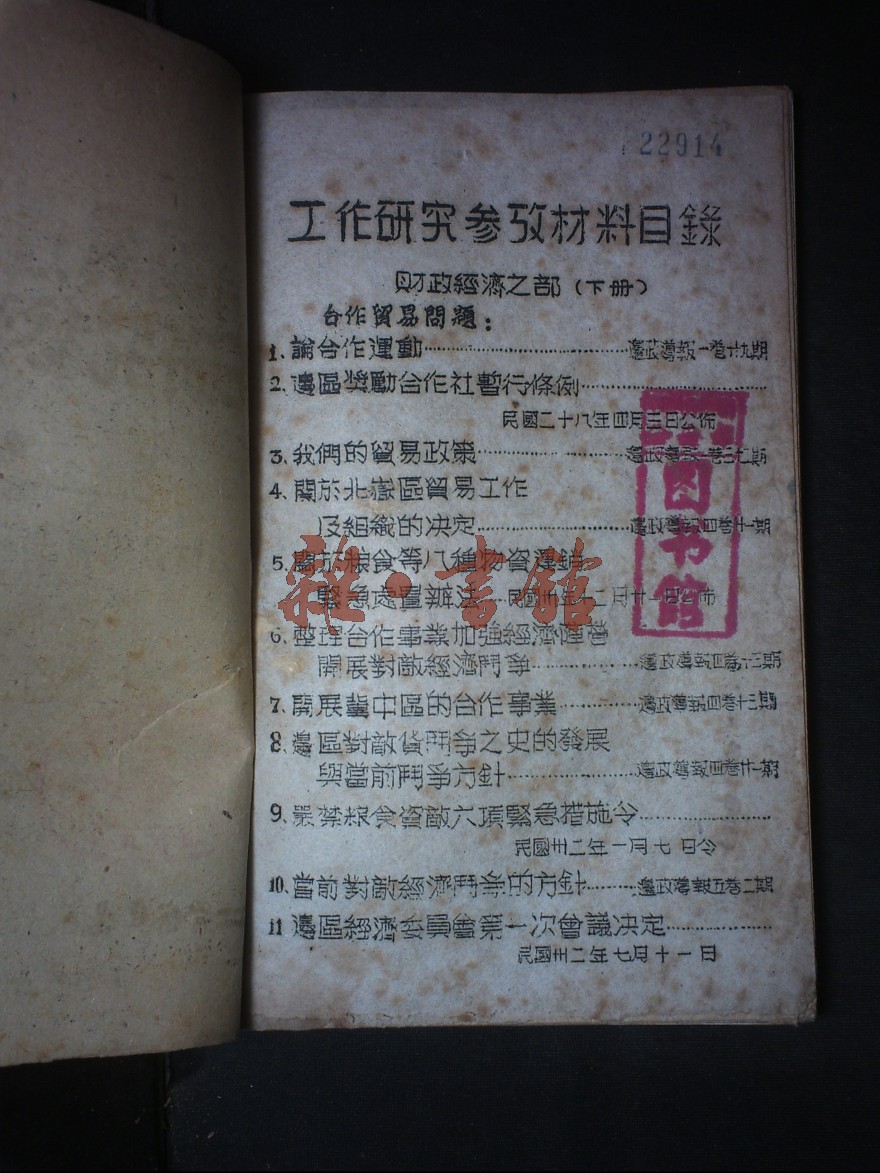 22914
工作研究参攷材料目錄
財政經濟之部（下册）
合作貿易問題：
1、論合作運動……邊政導報一卷十九期
2、邊區獎勵合作社暫行條例……
民國二十八年四月三日公佈
3、我們的貿易政策……邊政導報一卷三九期
4、關於北嶽區貿易工作
及組織的决定……邊政導報四卷十一期
5、關於粮食等八種物資運銷
緊急處置辦法……民國卅年十二月十一日公佈
6、整理合作事業加強經濟陣營
開展對敵經濟鬥爭……邊政導報四卷十三期
7、開展冀中區的合作事業……邊政導報四卷十三期
8、邊區對敵貨鬥爭之史的發展
與當前鬥爭方針……邊政導報四卷廿一期
9、嚴禁粮食資敵六項緊急措施令……
民國卅二年一月七日令
10、當前對敵經濟鬥爭的方針……邊政導報五卷二期
11 邊區經濟委員會第一次會議决定……
民國卅二年七月十一日
图书馆
雜·書館